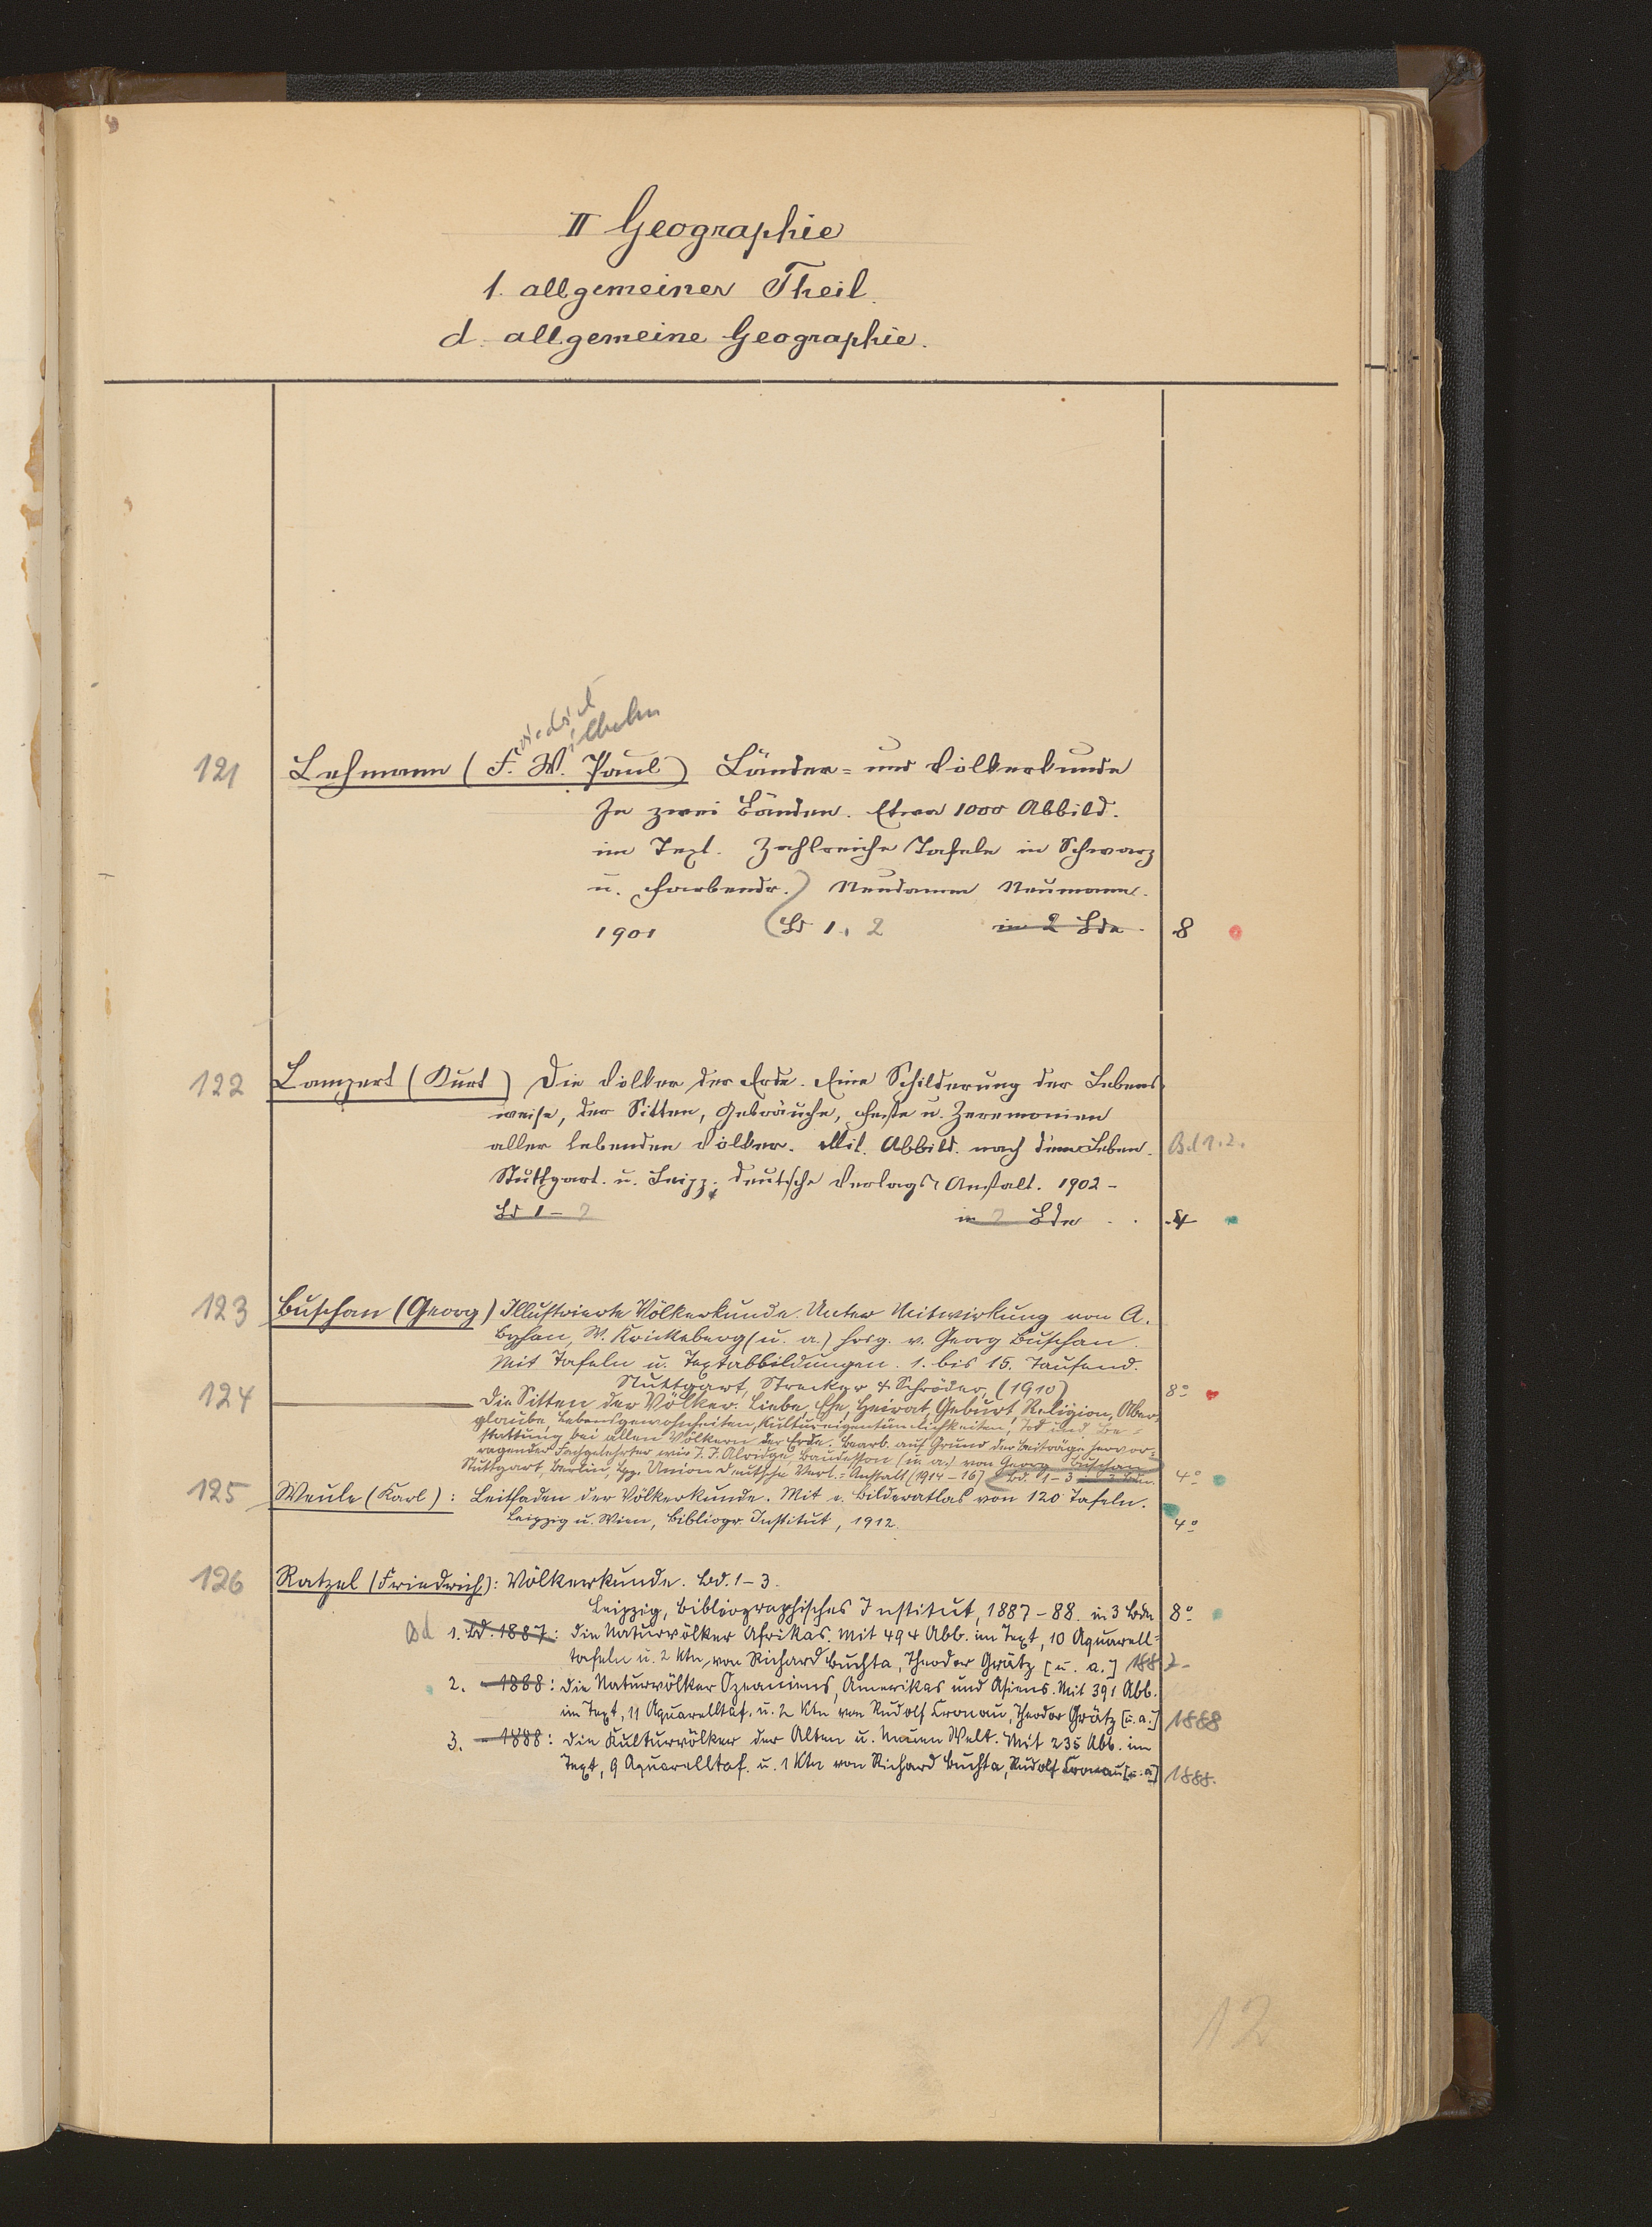 II Geographie
1. allgemeiner Theil.
d. allgemeine Geographie.
riedrich
ilhelm
121 Lehmann (F. W. Paul) Länder= und Völkerkunde
In zwei Bänden. Etwa 1000 Abbild.
im Text. Zahlreiche Tafeln in Schwarz
u. Farbendr. Neudamm Neumann.
1901 Bd 1. 2 in 2 Bde. 8
122 Lampert (Kurt) Die Völker der Erde. Eine Schilderung der Lebens
weise, der Sitten, Gebräuche, Feste u. Zeremonien
aller lebenden Völker. Mit. Abbild. nach dem Leben. Bd 1. 2.
Stuttgart. u. Leipz. deutsche Verlags-Anstalt. 1902 -
Bd 1 - 2 in 2 Bde . . 4
123 Buschan (Georg) Illustrierte Völkerkunde. Unter Mitwirkung von A.
Byhan, W. Krickeberg (u. a.) hrsg. v. Georg Buschan.
Mit Tafeln u. Textabbildungen. 1. bis 15. Tausend.
Stuttgart, Strecker & Schröder, (1910) 8º
124 Die Sitten der Völker. Liebe, Ehe, Heirat, Geburt, Religion, Aber-
glaube, Lebensgewohnheiten, Kultureigentümlichkeiten, Tod und Be=
stattung bei allen Völkern der Erde. Bearb. auf Grund der Beiträge hervor=
ragender Fachgelehrter wie J. J. Alridge, Baudesson (u. a.) von Georg Buschan
Stuttgart, Berlin, Lpz. Union Deutsche Verl.= Anstalt (1914-16) Bd. 1-3 in 3 Bdn. 4º
125 Weule (Karl): Leitfaden der Völkerkunde. Mit e. Bilderatlas von 120 Tafeln.
Leipzig u. Wien, Bibliogr. Institut, 1912. 4º
126 Ratzel (Friedrich): Völkerkunde. Bd. 1-3.
Leipzig, Bibliographisches Institut, 1887-88. in 3 Bdn 8º
Bd 1. Bd. 1887: die Naturvölker Afrikas. Mit 494 Abb. im Text, 10 Aquarell=
tafeln u. 2 Ktn von Richard Buchta, Theodor Grätz [u. a.] 1887-
2. - 1888: die Naturvölker Ozeaniens, Amerikas und Asiens. Mit 391 Abb.
im Text, 11 Aquarelltaf. u. 2 Ktn von Rudolf Cronau, Theodor Grätz [u. a.] 1888
3. - 1888: die Kulturvölker der Alten u. Neuen Welt. Mit 235 Abb. im
Text, 9 Aquarelltaf. u. 1 Kte von Richard Buchta, Rudolf Cronau [u. a.] 1888.
12